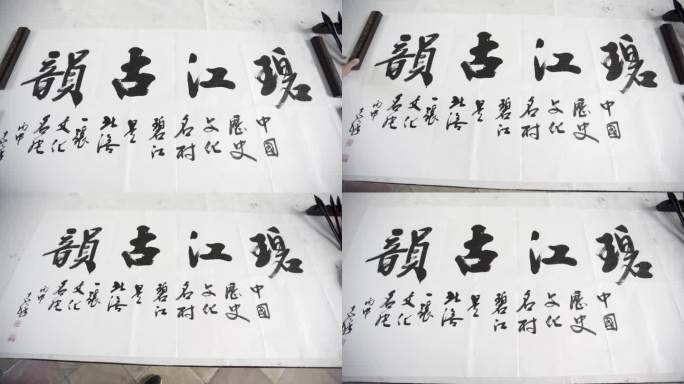 碧江古韻
中國
歷史
文化
名村
碧江
是
北滘
一張
文化
名片
丙申
碧江古韻
中國
歷史
文化
名村
碧江
是
北滘
一張
文化
名片
丙申
碧江古韻
中國
歷史
文化
名村
碧江
是
北滘
一張
文化
名片
丙申
碧江古韻
中國
歷史
文化
名村
碧江
是
北滘
一張
文化
名片
丙申